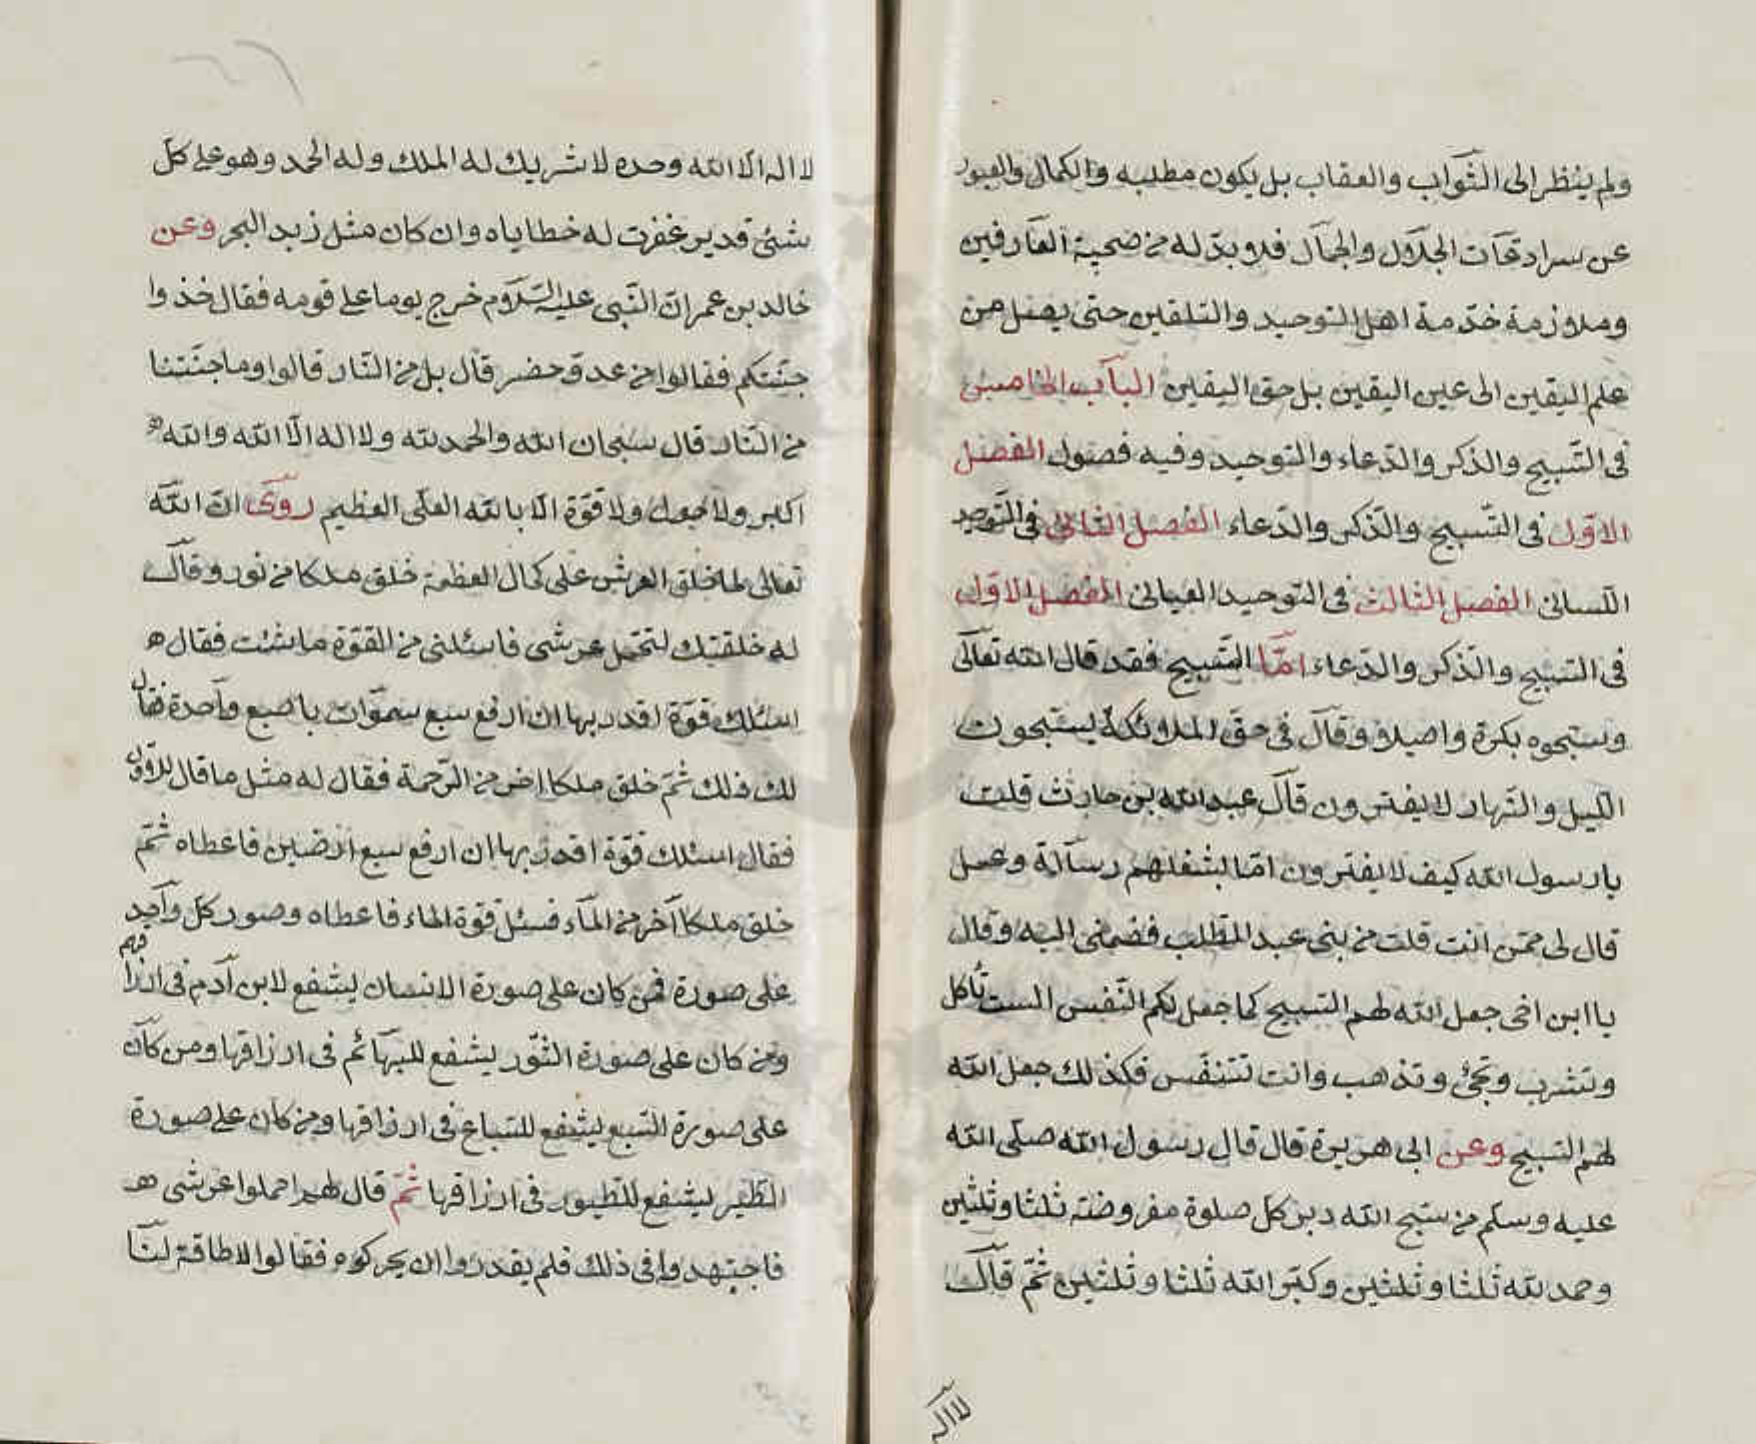 ولم ينظر الى الثواب والعقاب بل يكون مطلبه والكمال والعبور
عن سرادقات الجلال والجمال فلا بدّ له من صحبة العارفين
وملازمة خدمة اهل التوحيد والتلقين حتى يصل من
علم اليقين الى عين اليقين بل حق اليقين الباب الخامس
فى التسبيح والذكر والدعاء والتوحيد وفيه فصول الفصل
الاوّل فى التسبيح والذكر والدعاء الفصل الثانى فى التوحيد
اللسانى الفصل الثالث فى التوحيد العيانى الفصل الاوّل
فى التسبيح والذكر والدعاء امّا التسبيح فقد قال الله تعالى
وسبحوه بكرة واصيلا وقال فى حق الملائكة يسبحون
الليل والنهار لا يفترون قال عبد الله بن حارث قلت
يا رسول الله كيف لا يفترون امّا يشغلهم رسالة وعمل
قال لى ممّن انت قلت من بنى عبد المطّلب فضمنى اليه وقال
يا ابن اخى جعل الله لهم التسبيح كما جعل لكم النّفس الست تأكل
وتشرب وتجئ وتذهب وانت تتنفّس فكذلك جعل الله
لهم التسبيح وعن ابى هريرة قال قال رسول الله صلّى الله
عليه وسلم من سبّح الله دبر كل صلوة مفروضة ثلثا وثلثين
وحمد لله ثلثا وثلثين وكبّر الله ثلثا وثلثين ثمّ قال
لا اله
لا اله الّا الله وحده لا شريك له الملك وله الحمد وهو على كل
شئ قدير غفرت له خطاياه وان كان مثل زبد البحر وعن
خالد بن عمر انّ النّبى عليه السّلام خرج يوما على قومه فقال خذوا
جنّتكم فقالوا من عدوّ حضر قال بل من النّار قالوا وما جنّتنا
من النّار قال سبحان الله والحمد لله ولا اله الّا الله والله
اكبر ولا حول ولا قوّة الّا بالله العلى العظيم روى انّ الله
تعالى لما خلق العرش على كمال العظمة خلق ملكا من نور وقال
له خلقتك لتحمل عرشى فاسئلنى من القوّة ما شئت فقال
اسئلك قوّة اقدر بها ان ارفع سبع سموات باصبع واحدة فقال
لك ذلك ثمّ خلق ملكا اخر من الرّحمة فقال له مثل ما قال للاوّل
فقال اسئلك قوّة اقدر بها ان ارفع سبع ارضين فاعطاه ثمّ
خلق ملكا آخر من المآء فسئل قوّة الماء فاعطاه وصور كل واحد
على صورة فمن كان على صورة الانسان يشفع لابن آدم فى ارزاقهم
ومن كان على صورة الثّور يشفع للبهائم فى ارزاقها ومن كان
على صورة السّبع يشفع للسّباع فى ارزاقها ومن كان على صورة
الطّير يشفع للطّيور فى ارزاقها ثمّ قال لهم احملوا عرشى
فاجتهدوا فى ذلك فلم يقدروا ان يحركوه فقالوا لا طاقة لنا